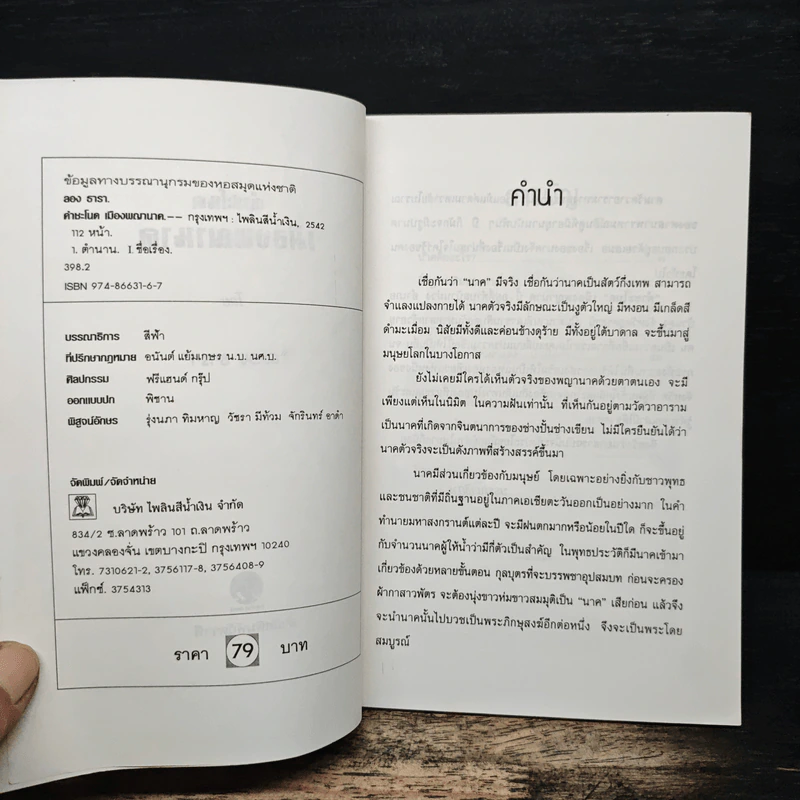 ข้อมูลทางบรรณานุกรมของหอสมุดแห่งชาติ
ลอง ธารา.
คำชะโนด เมืองพญานาค.-- กรุงเทพฯ : ไพลินสีน้ำเงิน, 2542
112 หน้า.
1. ตำนาน. I. ชื่อเรื่อง.
398.2
ISBN 974-86631-6-7
บรรณาธิการ สีฟ้า
ที่ปรึกษากฎหมาย อนันต์ แย้มเกษร น.บ. นศ.บ.
ศิลปกรรม ฟรีแฮนด์ กรุ๊ป
ออกแบบปก พิชาน
พิสูจน์อักษร รุ่งนภา ทิมหาญ วัชรา มีท้วม จักรินทร์ อาดำ
จัดพิมพ์/จัดจำหน่าย
บริษัท ไพลินสีน้ำเงิน จำกัด
834/2 ซ.ลาดพร้าว 101 ถ.ลาดพร้าว
แขวงคลองจั่น เขตบางกะปิ กรุงเทพฯ 10240
โทร. 7310621-2, 3756117-8, 3756408-9
แฟ็กซ์. 3754313
ราคา 79 บาท
คำนำ
เชื่อกันว่า "นาค" มีจริง เชื่อกันว่านาคเป็นสัตว์กึ่งเทพ สามารถ
จำแลงแปลงกายได้ นาคตัวจริงมีลักษณะเป็นงูตัวใหญ่ มีหงอน มีเกล็ดสี
ดำมะเมื่อม นิสัยมีทั้งดีและค่อนข้างดุร้าย มีทั้งอยู่ใต้บาดาล จะขึ้นมาสู่
มนุษยโลกในบางโอกาส
ยังไม่เคยมีใครได้เห็นตัวจริงของพญานาคด้วยตาตนเอง จะมี
เพียงแต่เห็นในนิมิต ในความฝันเท่านั้น ที่เห็นกันอยู่ตามวัดวาอาราม
เป็นนาคที่เกิดจากจินตนาการของช่างปั้นช่างเขียน ไม่มีใครยืนยันได้ว่า
นาคตัวจริงจะเป็นดังภาพที่สร้างสรรค์ขึ้นมา
นาคมีส่วนเกี่ยวข้องกับมนุษย์ โดยเฉพาะอย่างยิ่งกับชาวพุทธ
และชนชาติที่มีถิ่นฐานอยู่ในภาคเอเชียตะวันออกเป็นอย่างมาก ในคำ
ทำนายมหาสงกรานต์แต่ละปี จะมีฝนตกมากหรือน้อยในปีใด ก็จะขึ้นอยู่
กับจำนวนนาคผู้ให้น้ำว่ามีกี่ตัวเป็นสำคัญ ในพุทธประวัติก็มีนาคเข้ามา
เกี่ยวข้องด้วยหลายขั้นตอน กุลบุตรที่จะบรรพชาอุปสมบท ก่อนจะครอง
ผ้ากาสาวพัตร จะต้องนุ่งขาวห่มขาวสมมุติเป็น "นาค" เสียก่อน แล้วจึง
จะนำนาคนั้นไปบวชเป็นพระภิกษุสงฆ์อีกต่อหนึ่ง จึงจะเป็นพระโดย
สมบูรณ์